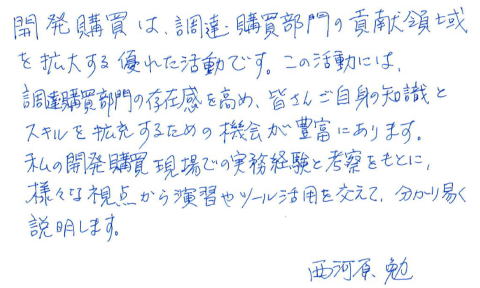 開発購買は、調達・購買部門の貢献領域
を拡大する優れた活動です。この活動には、
調達購買部門の存在感を高め、皆さんご自身の知識と
スキルを拡充するための機会が豊富にあります。
私の開発購買現場での実務経験と考察をもとに、
様々な視点から演習やツール活用を交えて、分かり易く
説明します。
西河原勉